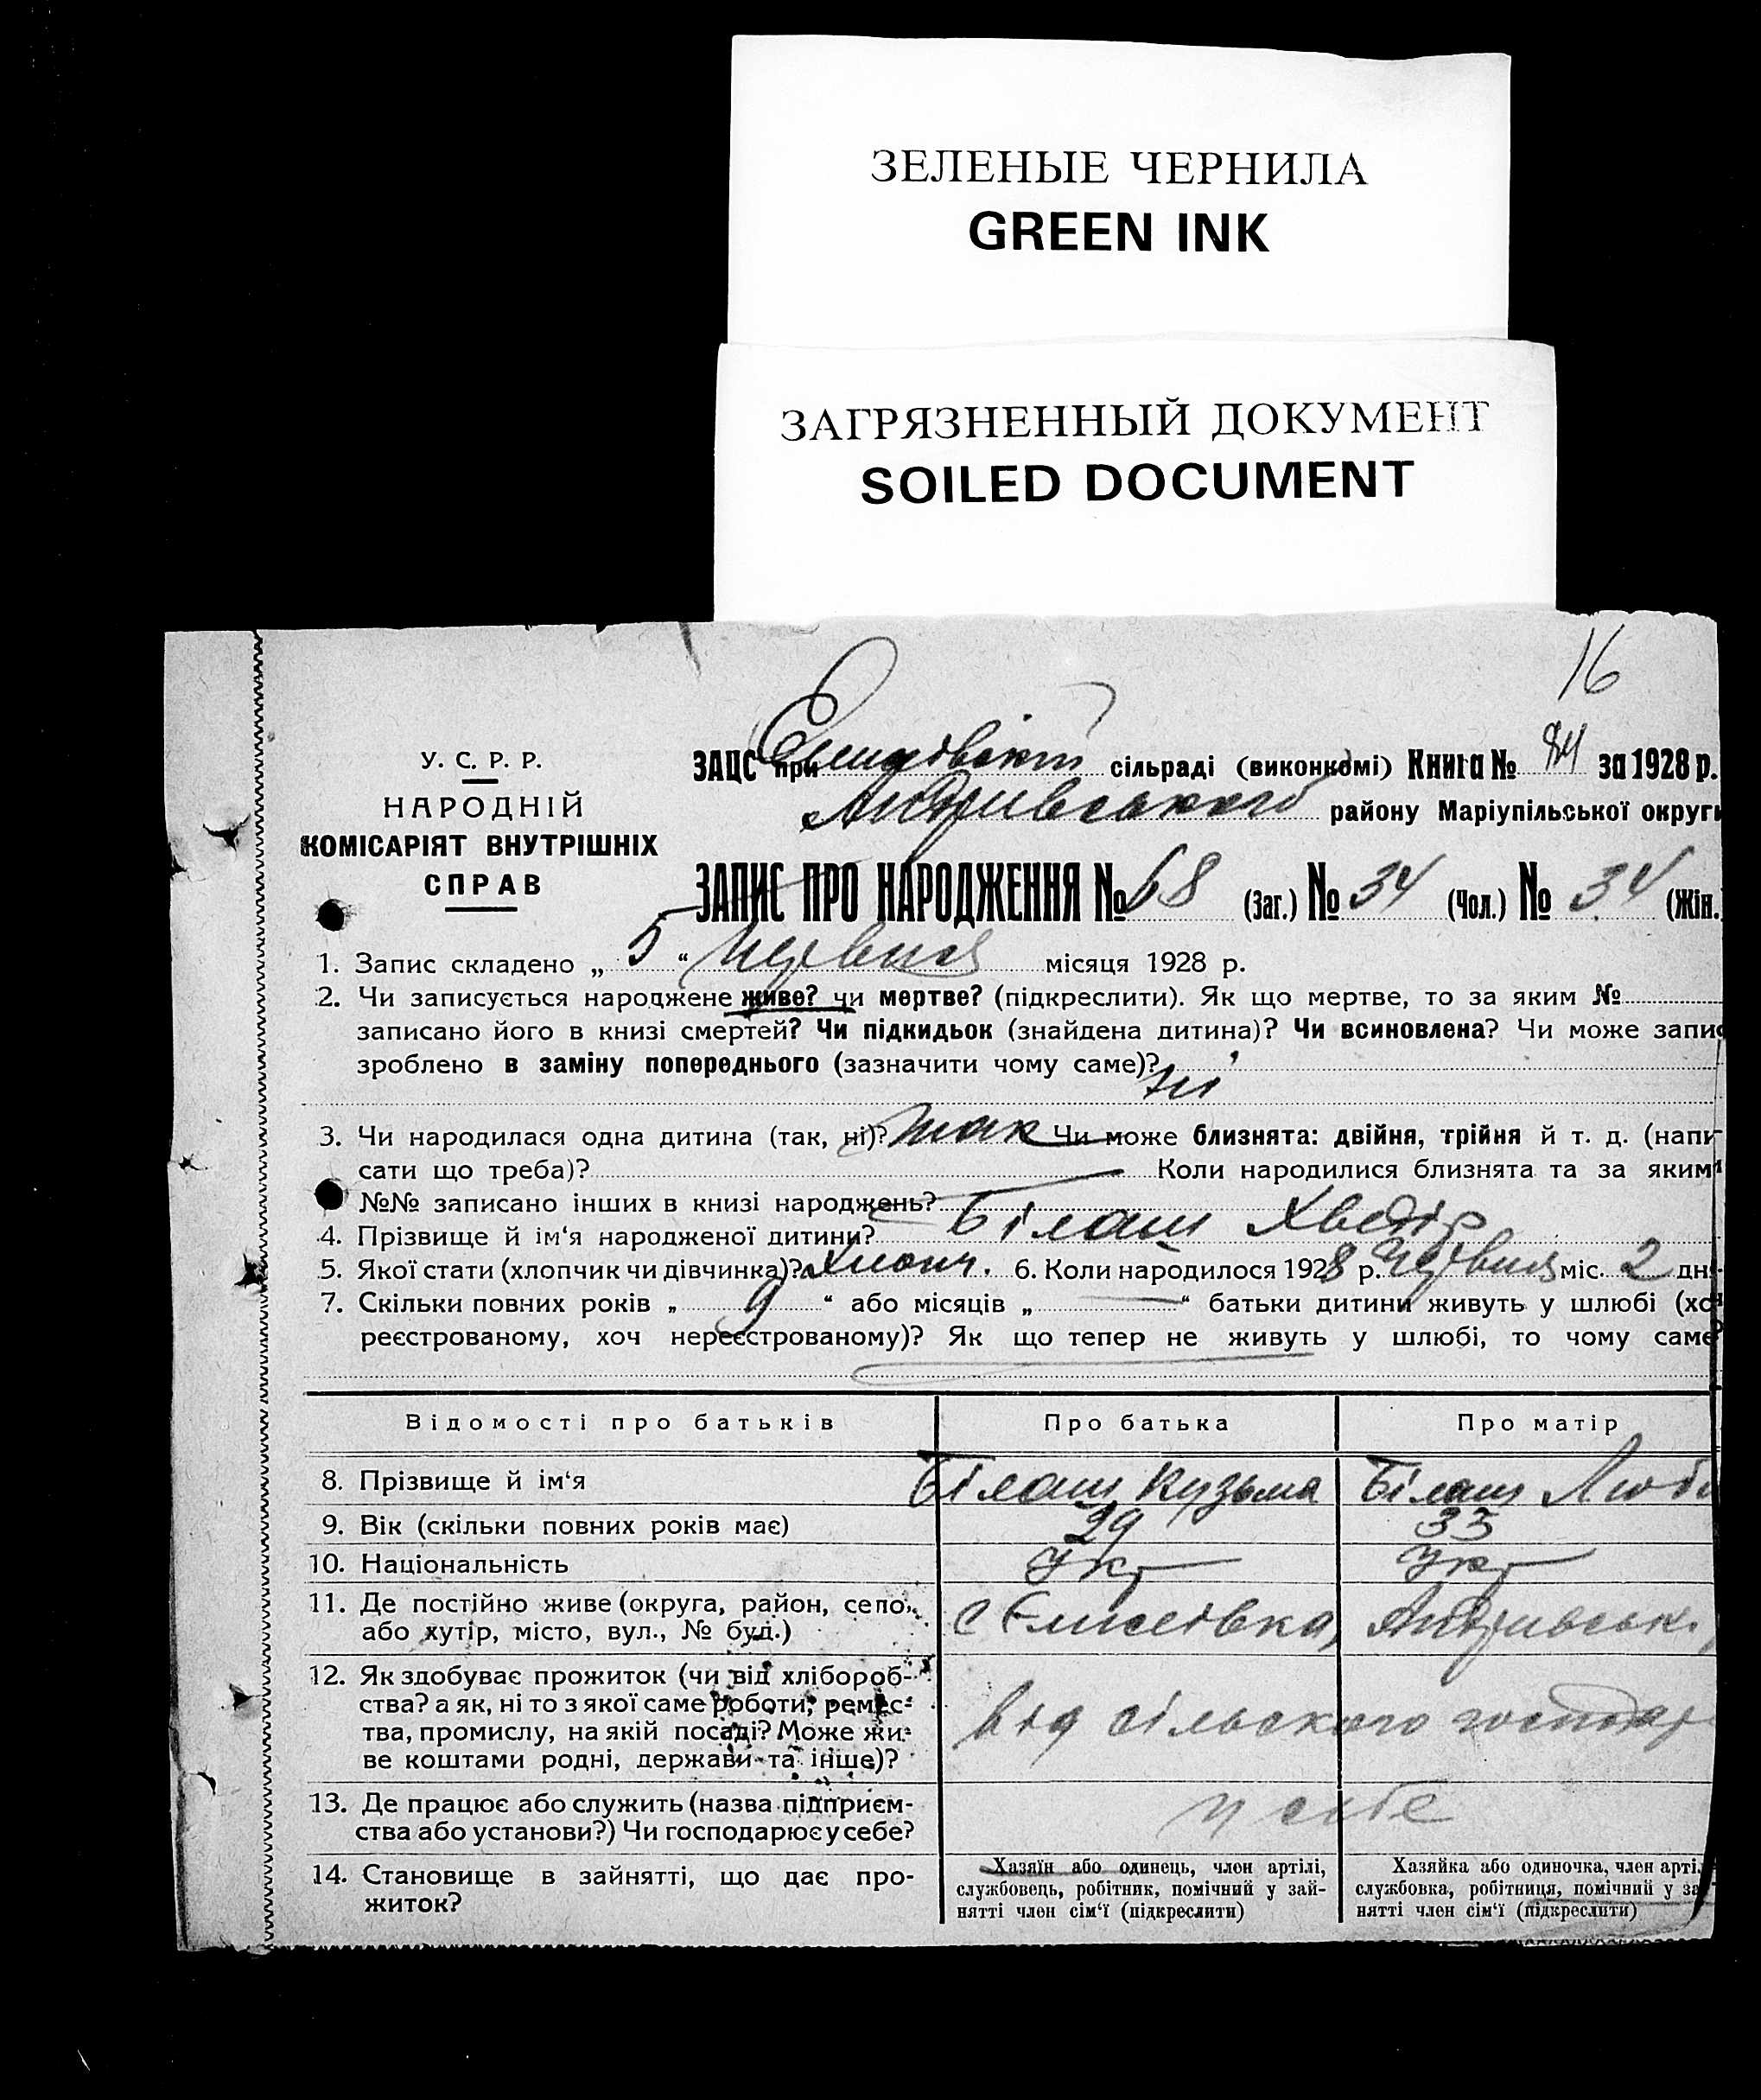 ЗЕЛЕНЫЕ ЧЕРНИЛА
GREEN INK
ЗАГРЯЗНЕННЫЙ ДОКУМЕНТ
SOILED DOCUMENT
16
У. С. Р. Р.
НАРОДНІЙ
КОМІСАРІЯТ ВНУТРІШНІХ
СПРАВ
ЗАЦС при сільраді (виконкомі) Книга № за 1928 р.
Андрівського району Маріупільської округи
ЗАПИС ПРО НАРОДЖЕННЯ № 68 (Заг.) № 34 (Чол.) № 34 (Жін.)
1. Запис складено „ 5 “ Червня місяця 1928 р.
2. Чи записується народжене живе? чи мертве? (підкреслити). Як що мертве, то за яким №
записано його в книзі смертей? Чи підкидьок (знайдена дитина)? Чи всиновлена? Чи може запис
зроблено в заміну попереднього (зазначити чому саме)? ні
3. Чи народилася одна дитина (так, ні)? так Чи може близнята: двійня, трійня й т. д. (напи-
сати що треба)? Коли народилися близнята та за яким
№№ записано інших в книзі народжень?
4. Прізвище й ім‘я народженої дитини? Білаш Хведір
5. Якої стати (хлопчик чи дівчинка)? Хлопч. 6. Коли народилося 1928 р. Червня міс. 2 дня
7. Скільки повних років „ 9 “ або місяців „ — “ батьки дитини живуть у шлюбі (хоч
реєстрованому, хоч нереєстрованому)? Як що тепер не живуть у шлюбі, то чому саме?
Відомості про батьків Про батька Про матір
8. Прізвище й ім‘я Білаш Кузьма Білаш Люб
9. Вік (скільки повних років має) 29 33
10. Національність Укр Укр
11. Де постійно живе (округа, район, село, с Єлисеївка, Андрівськ.
або хутір, місто, вул., № буд.)
12. Як здобуває прожиток (чи від хлібороб-
ства? а як, ні то з якої саме роботи, ремес-
тва, промислу, на якій посаді? Може жи- від сільского господар
ве коштами родні, держави та інше)?
13. Де працює або служить (назва підприєм- у себе
ства або установи?) Чи господарює у себе?
14. Становище в зайнятті, що дає про-
житок?
Хазяїн або одинець, член артілі,
службовець, робітник, помічний у зай-
нятті член сім‘ї (підкреслити)
Хазяйка або одиночка, член арті
службовка, робітниця, помічний у за
нятті член сім‘ї (підкреслити)